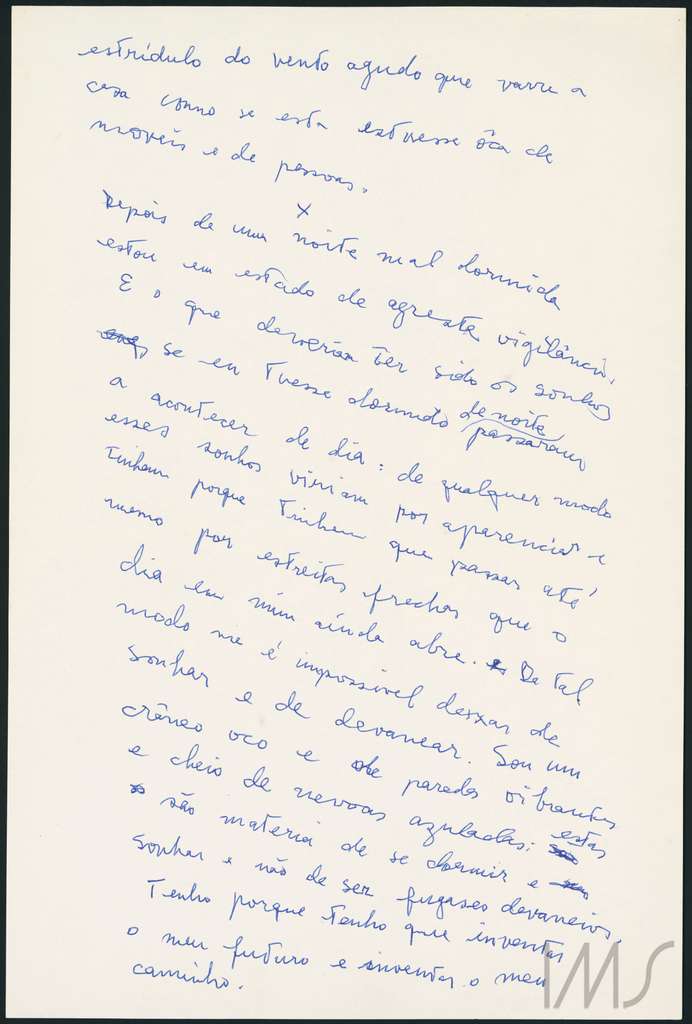 estrídulo do vento agudo que varre a
casa como se esta estivesse ôca de
moveis e de pessoas.
x
Depois de uma noite mal dormida
estou em estado de agreste vigilância.
E o que deveriam ter sido os sonhos
se eu tivesse dormido de noite passaram
a acontecer de dia: de qualquer modo
esses sonhos viriam por aparencias e
tinham porque tinham que passar até
mesmo por estreitas frechas que o
dia em mim ainda abre. De tal
modo me é impossivel deixar de
sonhar e de devanear. Sou um
crâneo oco e de paredes vibrantes
e cheio de nevoas azuladas: estas
são materia de se dormir e
sonhar e não de ser fugases devaneios.
Tenho porque tenho que inventar
o meu futuro e inventar o meu
caminho.
IMS